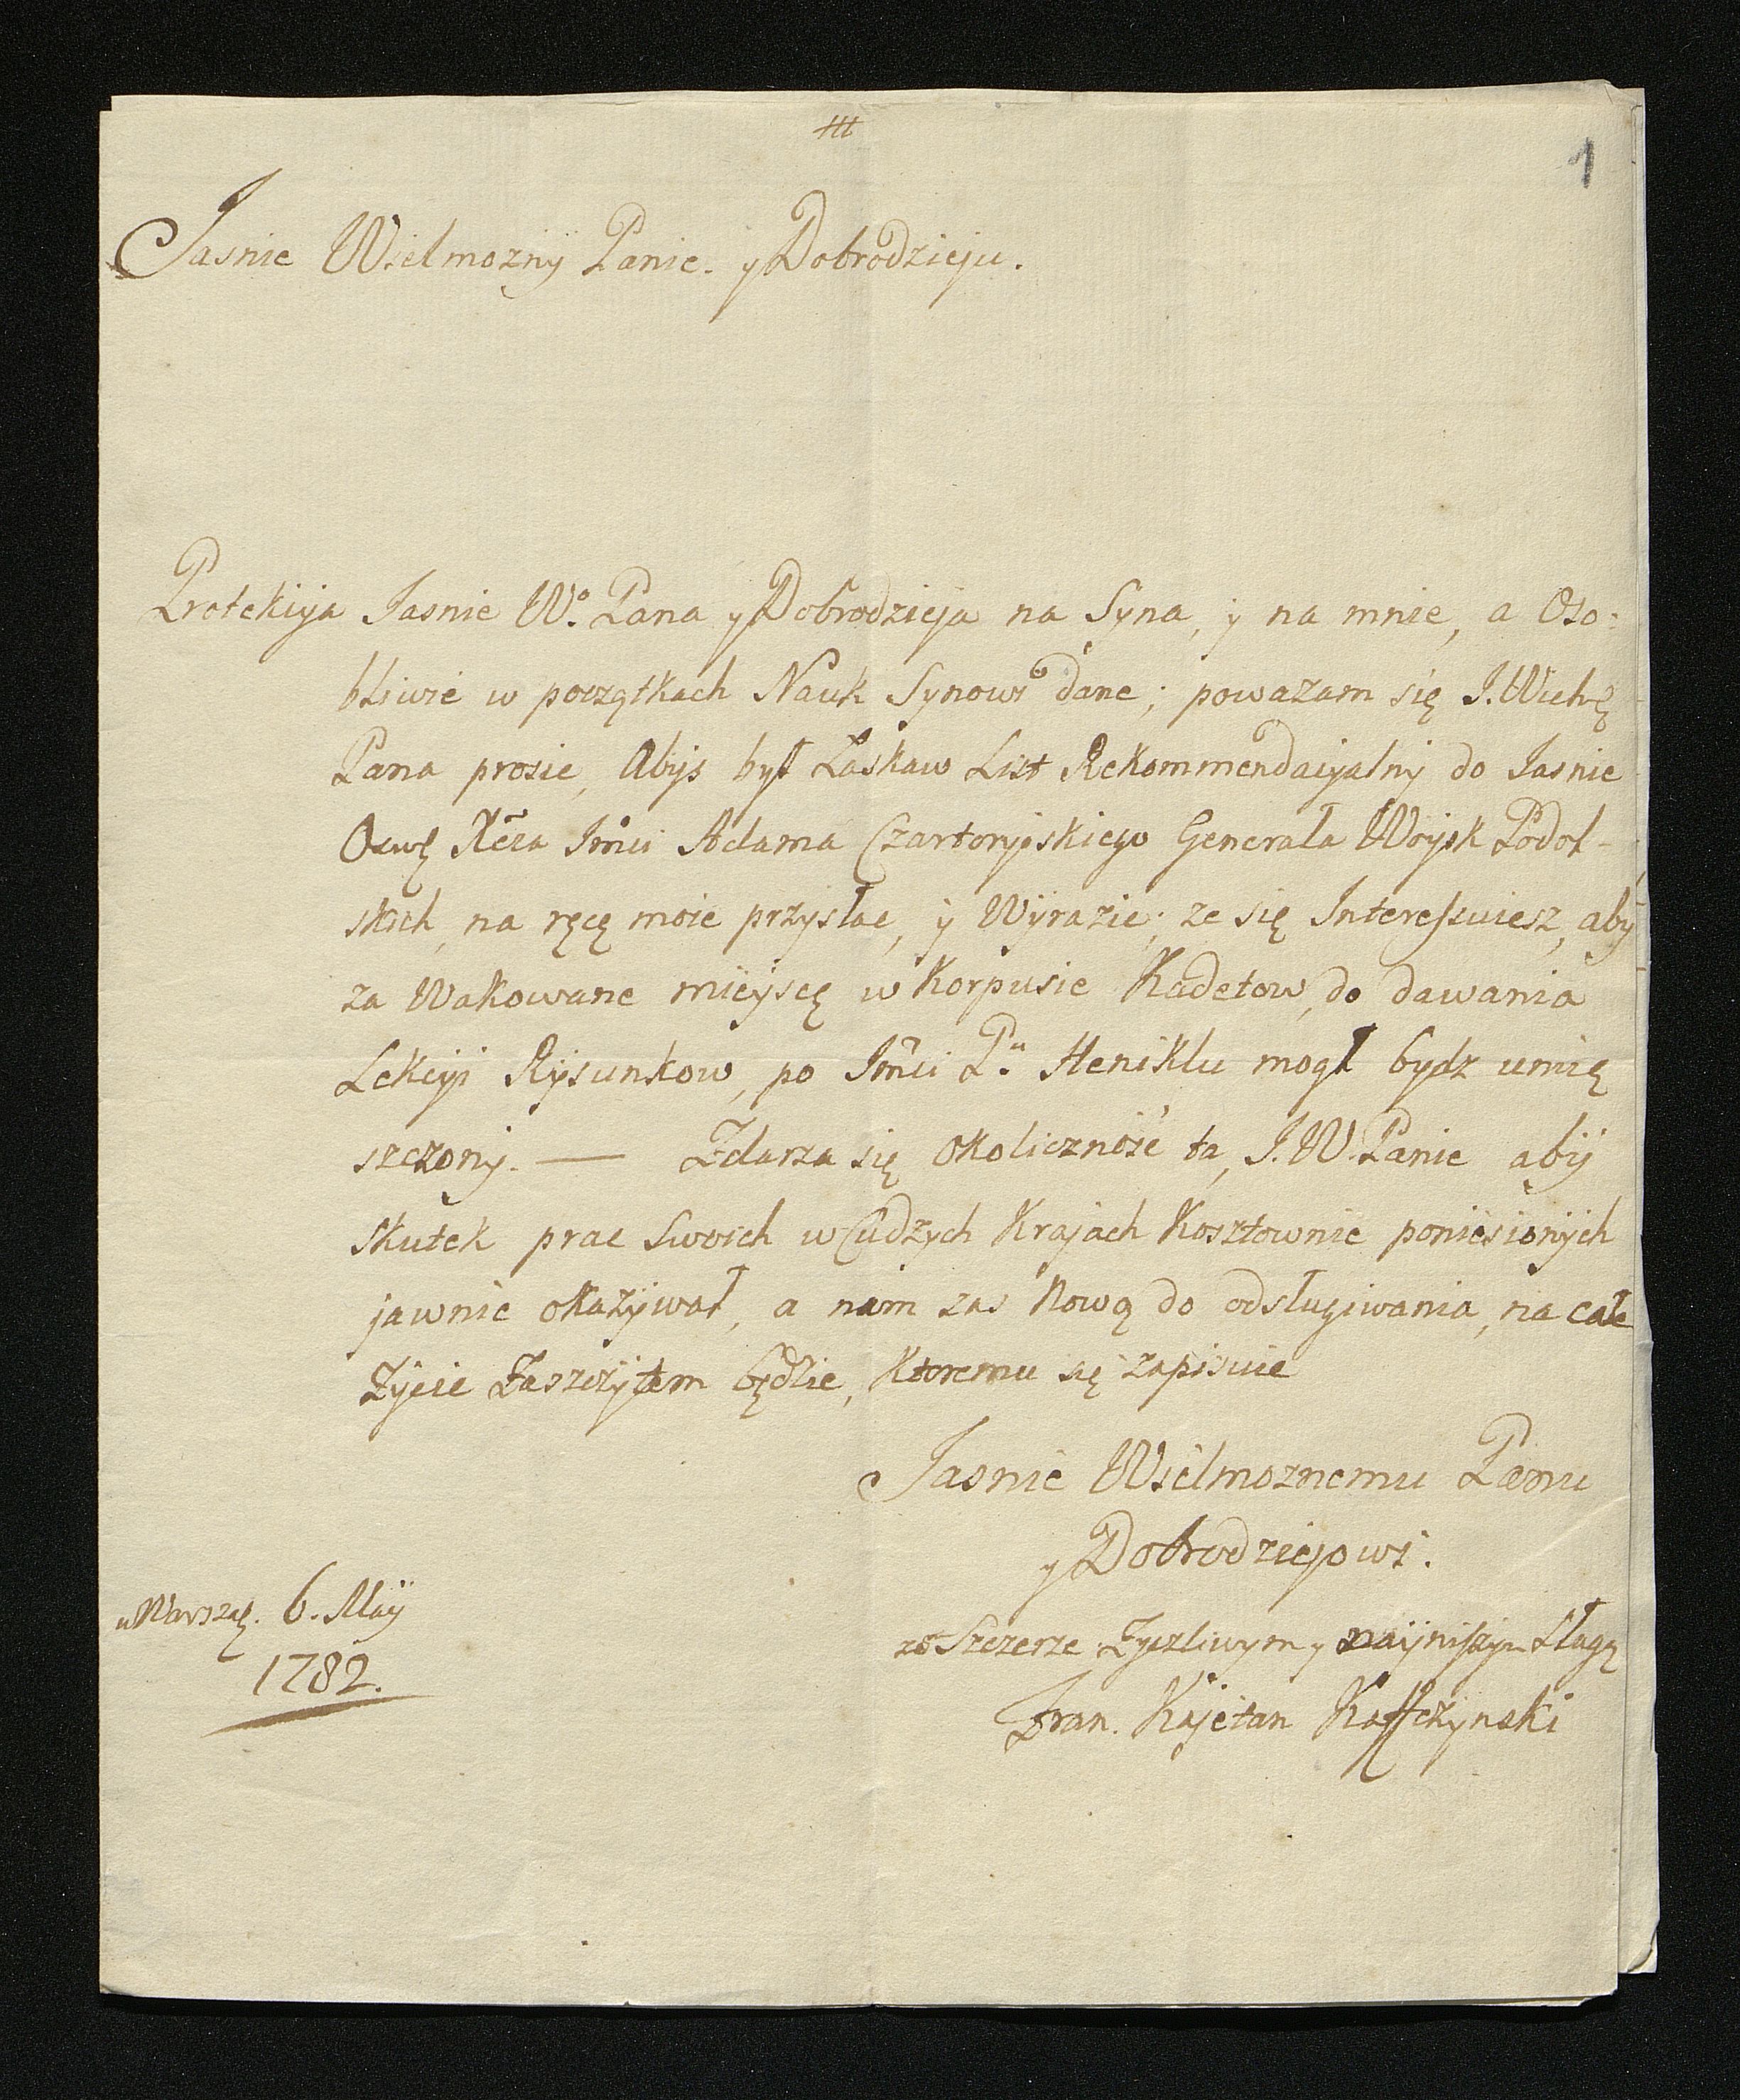 1
Jasnie Wielmozny Panie. y Dobrodzieju.
Protekcya Jasnie W.o Pana y Dobrodzieja na Syna, y na mnie, a Oso:
bliwie w początkach Nauk Synowi dane; powazam się J. Wielę
Pana prosic, Abys był Łaskaw List Rekommendacyalny do Jasnie
Oswę Xcza Jmci Adama Czartoryskiego Generała Woysk Podol-
skich, na ręcę moie przysłac, y Wyrazic; ze się Interessuiesz, aby
za Wakowane mieyscę w Korpusie Kadetow, do dawania
Lekcyi Rysunkow, po Jmci P.u Heniklu mogł bydz umię
szczony. — Zdarza się okolicznośc ta, J. W. Panie aby
skutek prac Swoich w Cudzych Krajach Kosztownie poniesionych
jawnie okazywał, a nam zas Nową do odsługiwania, na całe
Zycie Zaszczytem będzie, Ktoremu się zapisuie
Jasnie Wielmoznemu Panu
y Dobrodziejowi.
Szczerze Zyczliwym y nayniszym Sługą
Fran. Kajetan Kaffczynski
w Warszaę. 6. May
1782.